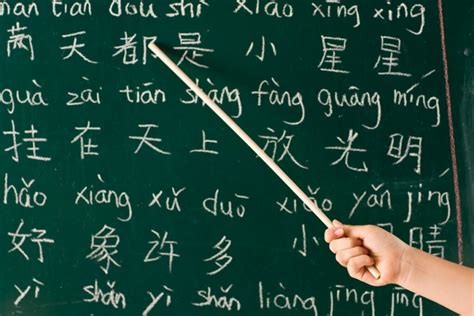 tiān dōu shì xiǎo xīng xīng
天都是小星星
guà zài tiān shàng fàng guāng míng
挂在天上放光明
hǎo xiàng xǔ duō xiǎo yǎn jīng
好象许多小
yì shǎn yì shǎn liàng jīng jīng